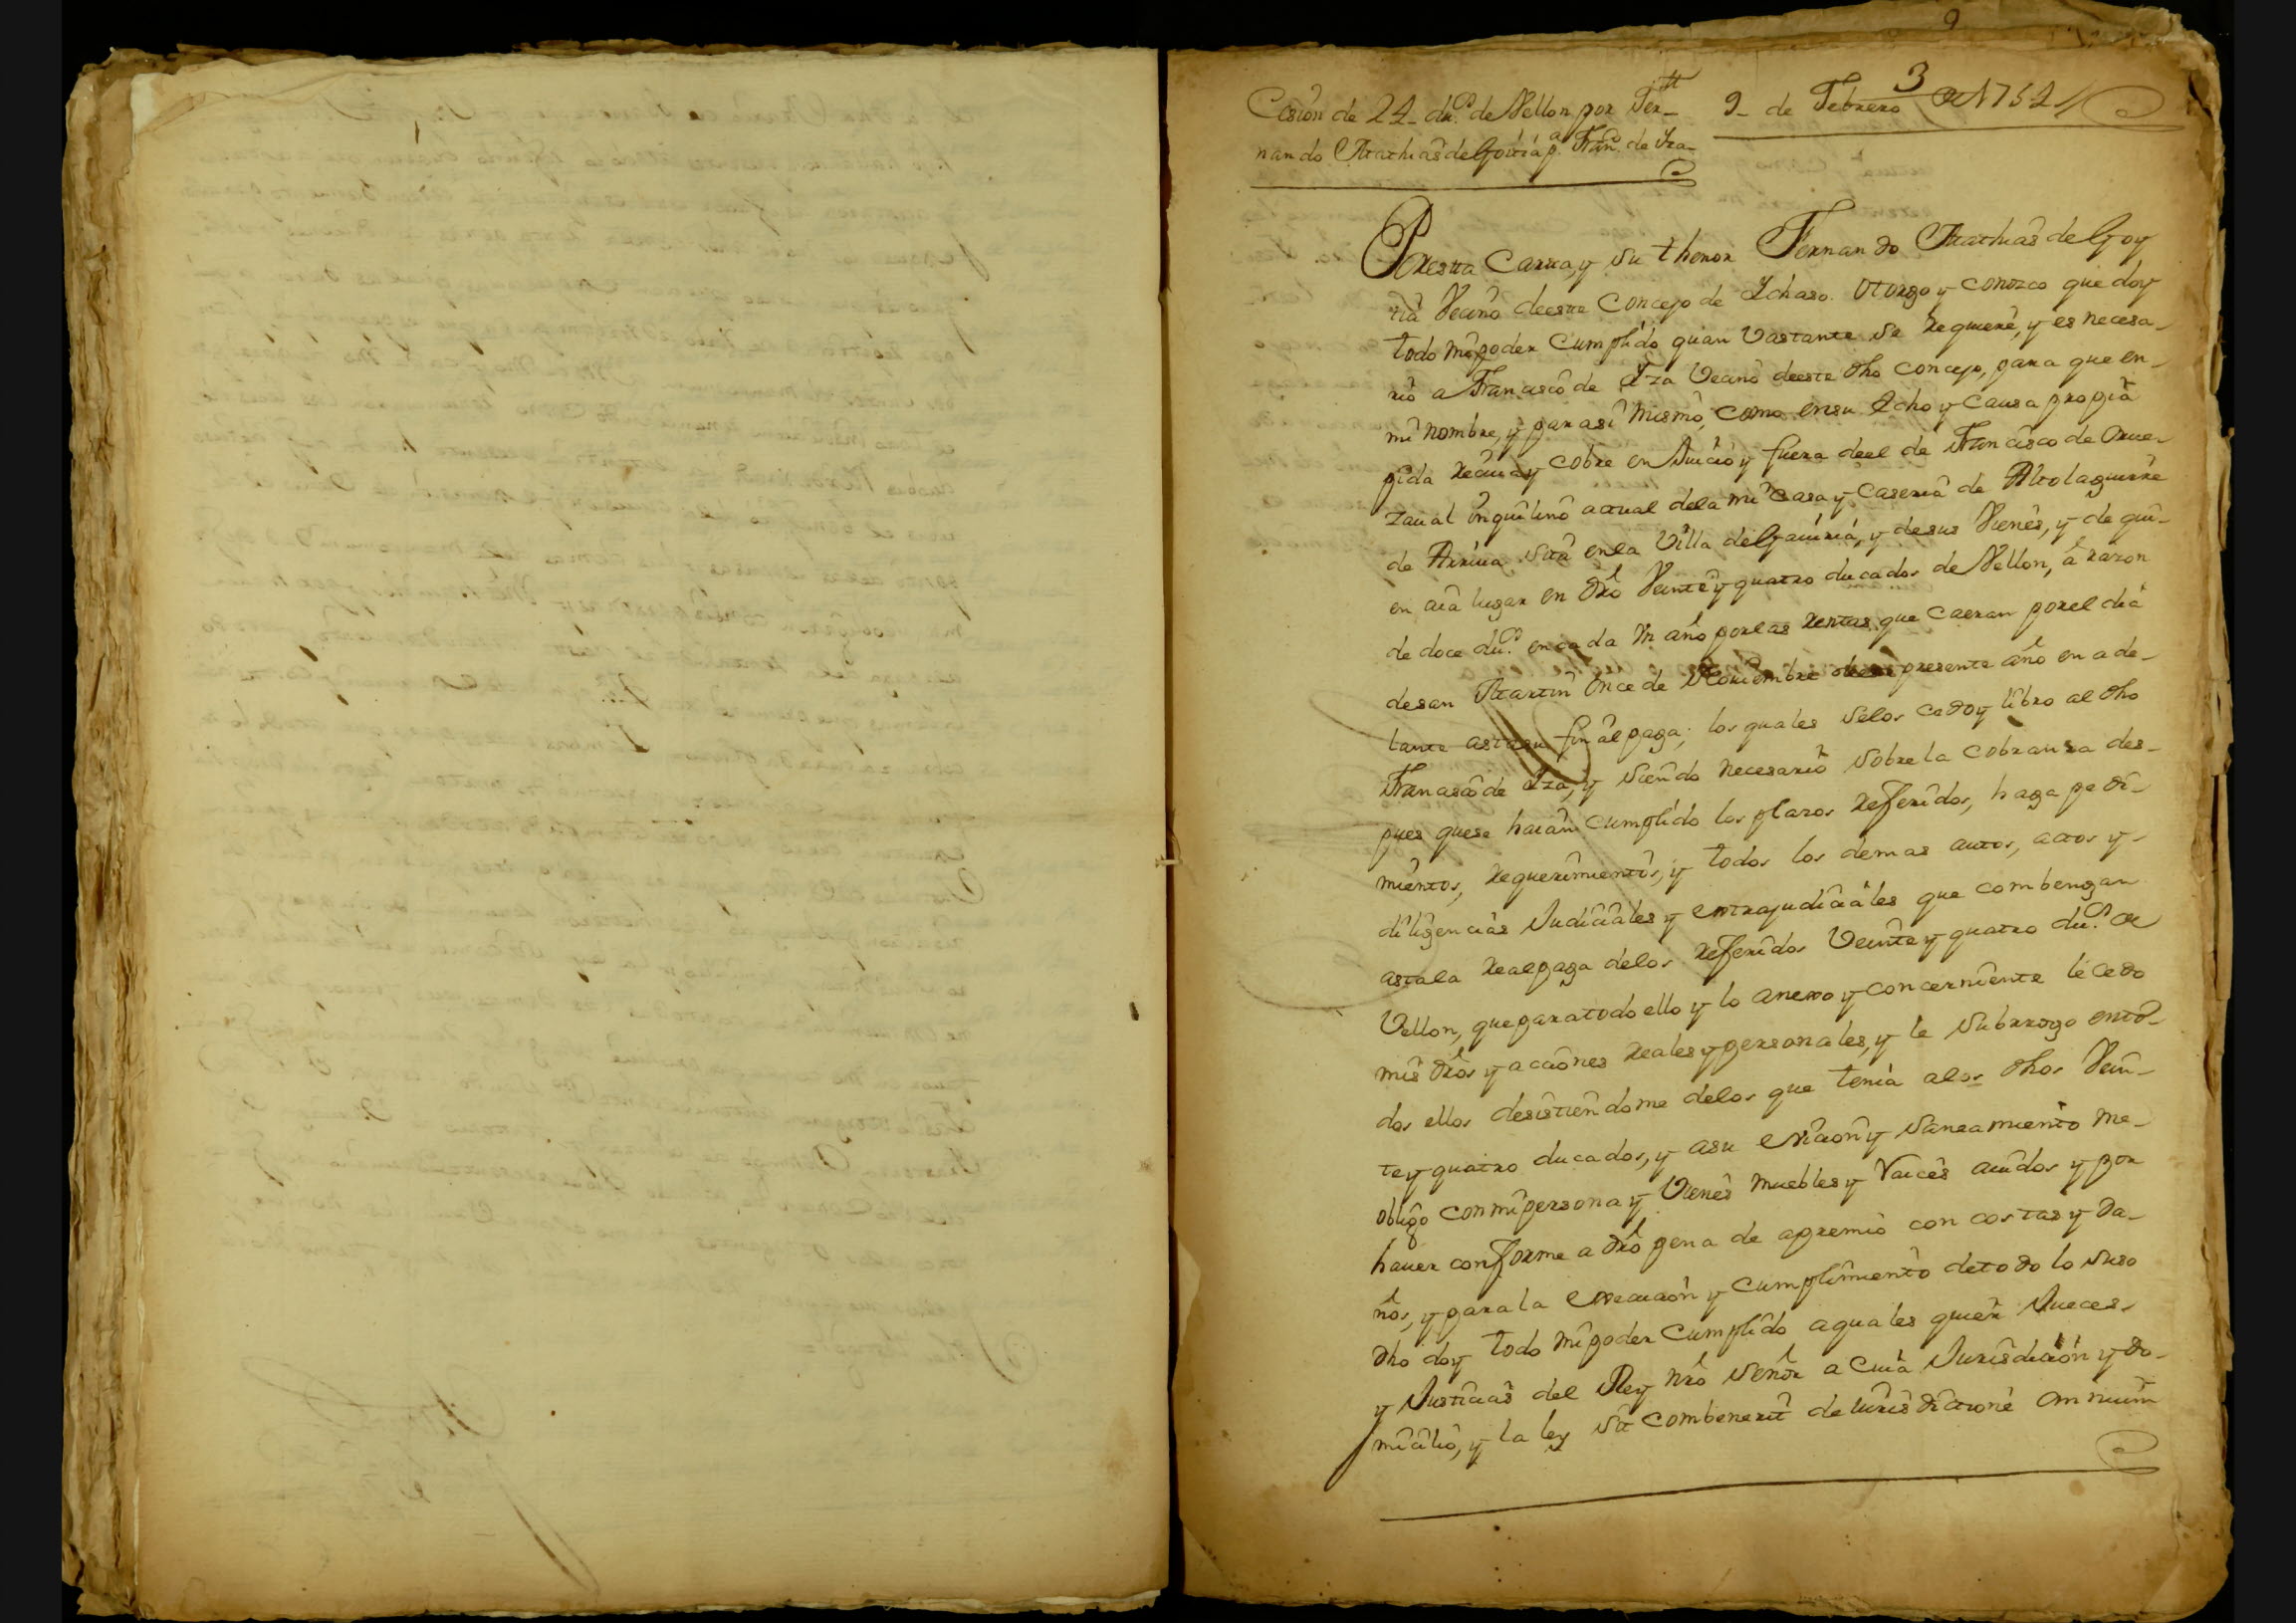 9
3
Cesion de 24_ du.s de Vellon por Fer_
nando Mathias de Goitia p.a Fran.co de Iza_
9_ de Febrero de 1752
Por esta Carta, y su thenor Fernando Mathias de Goy
tia Vecino de este Concejo de Ichaso. Otorgo y conozco que doy
todo mi poder Cumplido quan Vastante se requiere, y es necesa_
rio a Francisco de Iza Vecino de este dho concejo, para que en_
mi nombre, y para si mismo, como en su fcho y causa propia
pida reciva y cobre en Juicio y fuera de el de Francisco de Orue_
zaual inquilino actual de la mi Casa y Caseria de Altolaguirre
de Arriua sita en la Villa de Gauiria, y de sus Vienes, y de qui_
en aia lugar en dro Veinte y quatro ducados de Vellon, a razon
de doce du.s en cada Vn año por las rentas que caeran por el dia
de san Martin Once de Noviembre de este presente año en ade_
lante asta su final paga; los quales se los cedo y libro al dho
Francisco de Iza, y siendo necesario sobre la cobranza des_
pues que se haian cumplido los plazos referidos, haga pedi_
mientos, requerimientos, y todos los demas autos, actos y_
diligencias Judiciales y extrajudiciales que combengan
asta la real paga de los referidos Veinte y quatro du.s de
Vellon, que para todo ello y lo anexo y concerniente le cedo
mis dros y acciones reales y personales, y le subrrogo en to_
dos ellos desistiendome de los que tenia a los dhos Vein_
te y quatro ducados, y a su eviccion y saneamiento me_
obligo con mi persona y Vienes muebles y raices auidos y por
hauer conforme a dro pena de apremio con costas y da_
ños, y para la execucion y cumplimiento de todo lo suso
dho doy todo mi poder cumplido a quales quier Jueces_
y Justicias del Rey nro señor a cuia Jurisdicion y do_
micilio, y la ley sit combenerit de iurisdictione omnium